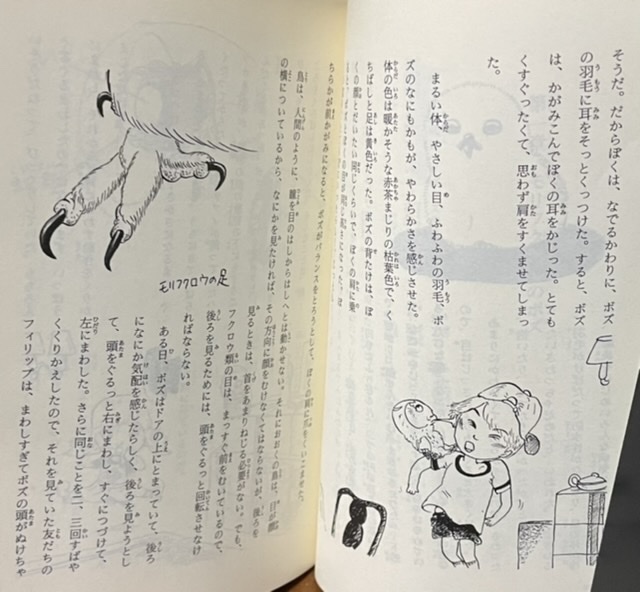 そうだ。だからぼくは、なでるかわりに、ボズ
の羽毛に耳をそっとくっつけた。すると、ボズ
は、かがみこんでぼくの耳をかじった。とても
くすぐったくて、思わず肩をすくませてしまっ
た。
まるい体、やさしい目、ふわふわの羽毛、ボ
ズのなにもかもが、やわらかさを感じさせた。
体の色は暖かそうな赤茶まじりの枯葉色で、く
ちばしと足は黄色だった。ボズの背たけは、ぼ
くの顔とだいたい同じくらいで、ぼくの肩に乗
ちらかが前かがみになると、ボズがバランスをとろうとして、ぼくの肩に爪をくいこませた。
鳥は、人間のように、瞳を目のはしからはしへとは動かせない。それにおおくの鳥は、目が顔
の横についているから、なにかを見たければ、その方向に顔をむけなくてはならないが、後ろを
見るときは、首をあまりねじる必要がない。でも、
フクロウ類の目は、まっすぐ前をむいているので、
後ろを見るためには、頭をぐるっと回転させなけ
ればならない。
ある日、ボズはドアの上にとまっていて、後ろ
になにか気配を感じたらしく、後ろを見ようとし
て、頭をぐるっと右にまわし、すぐにつづけて、
左にまわした。さらに同じことを二、三回すばや
くくりかえしたので、それを見ていた友だちの
フィリップは、まわしすぎてボズの頭がぬけちゃ
モリフクロウの足